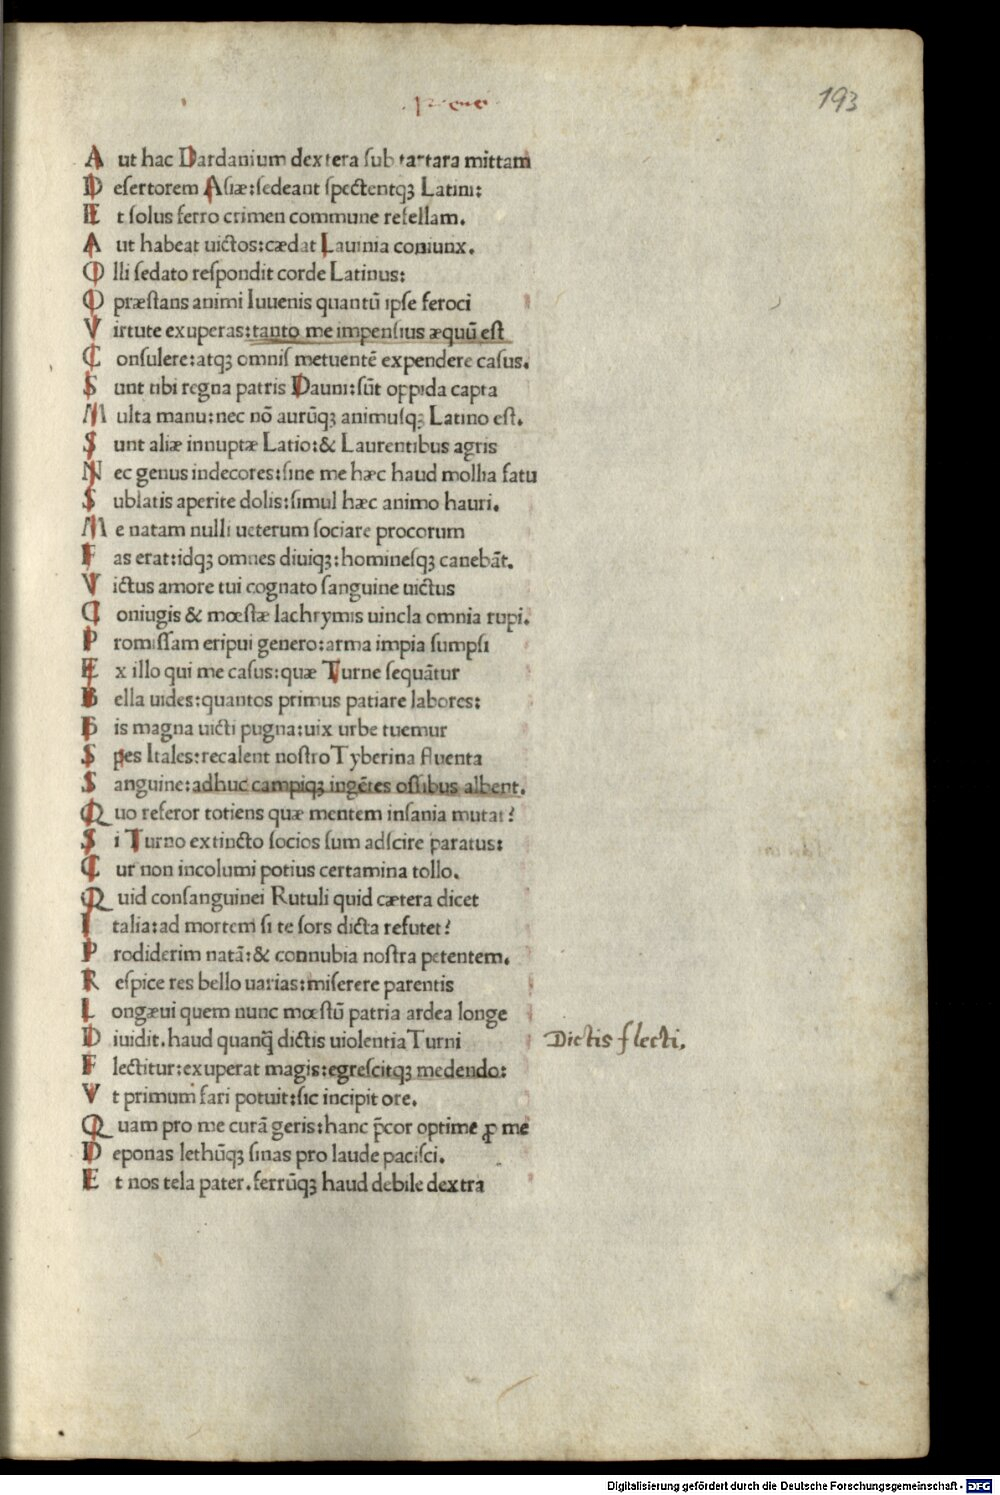 193
A ut hac Dardanium dextera sub tartara mittam
D esertorem Asiæ:sedeant spectentqꝫ Latini:
E t solus ferro crimen commune refellam.
A ut habeat uictos:cædat Lauinia coniunx.
O lli sedato respondit corde Latinus:
O præstans animi Iuuenis quantū ipse feroci
V irtute exuperas:tanto me impensius æquū est
C onsulere:atqꝫ omnis metuentē expendere casus.
S unt tibi regna patris Dauni:sūt oppida capta
M ulta manu:nec nō aurūqꝫ animusqꝫ Latino est.
S unt aliæ innuptæ Latio:& Laurentibus agris
N ec genus indecores:sine me hæc haud mollia fatu
S ublatis aperire dolis:simul hæc animo hauri.
M e natam nulli ueterum sociare procorum
F as erat:idqꝫ omnes diuiqꝫ:hominesqꝫ canebāt.
V ictus amore tui cognato sanguine uictus
C oniugis & mœstæ lachrymis uincla omnia rupi.
P romissam eripui genero:arma impia sumpsi
E x illo qui me casus:quæ Turne sequātur
B ella uides:quantos primus patiare labores:
B is magna uicti pugna:uix urbe tuemur
S pes Itales:recalent nostro Tyberina fluenta
S anguine:adhuc campiqꝫ ingētes ossibus albent.
Q uo referor totiens quæ mentem insania mutat?
S i Turno extincto socios sum adscire paratus:
C ur non incolumi potius certamina tollo.
Q uid consanguinei Rutuli quid cætera dicet
I talia:ad mortem si te sors dicta refutet?
P rodiderim natā:& connubia nostra petentem.
R espice res bello uarias:miserere parentis
L ongæui quem nunc mœstū patria ardea longe
D iuidit.haud quanq̄ dictis uiolentia Turni
Dictis flecti.
F lectitur:exuperat magis:egrescitqꝫ medendo:
V t primum fari potuit:sic incipit ore.
Q uam pro me curā geris:hanc p̄cor optime ꝓ me
D eponas lethūqꝫ sinas pro laude pacisci.
E t nos tela pater.ferrūqꝫ haud debile dextra
Digitalisierung gefördert durch die Deutsche Forschungsgemeinschaft - DFG